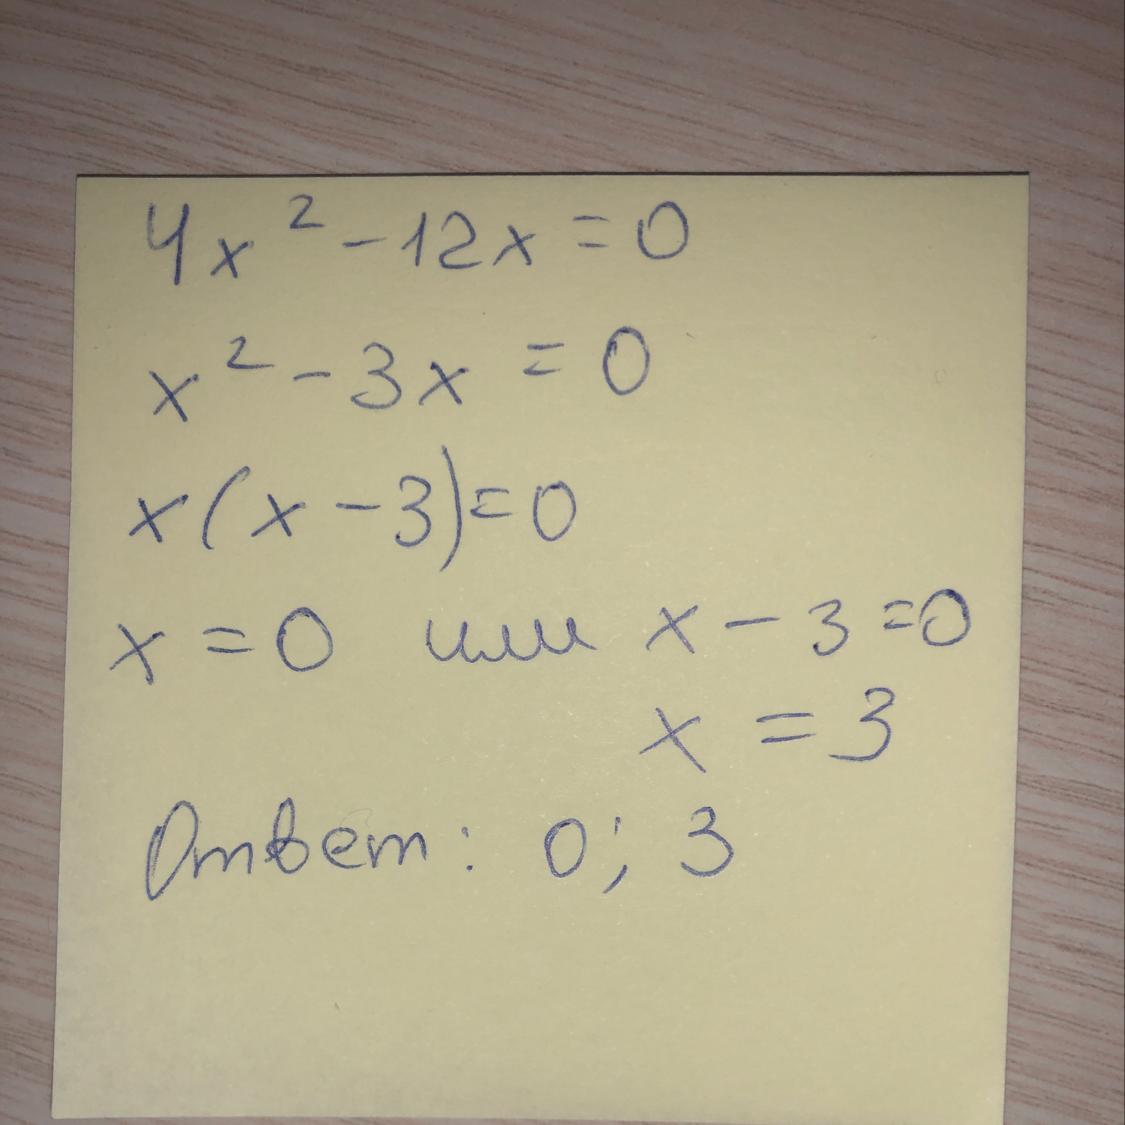 4x² - 12x = 0
x² - 3x = 0
x(x - 3) = 0
x = 0 или x - 3 = 0
x = 3
Ответ: 0; 3